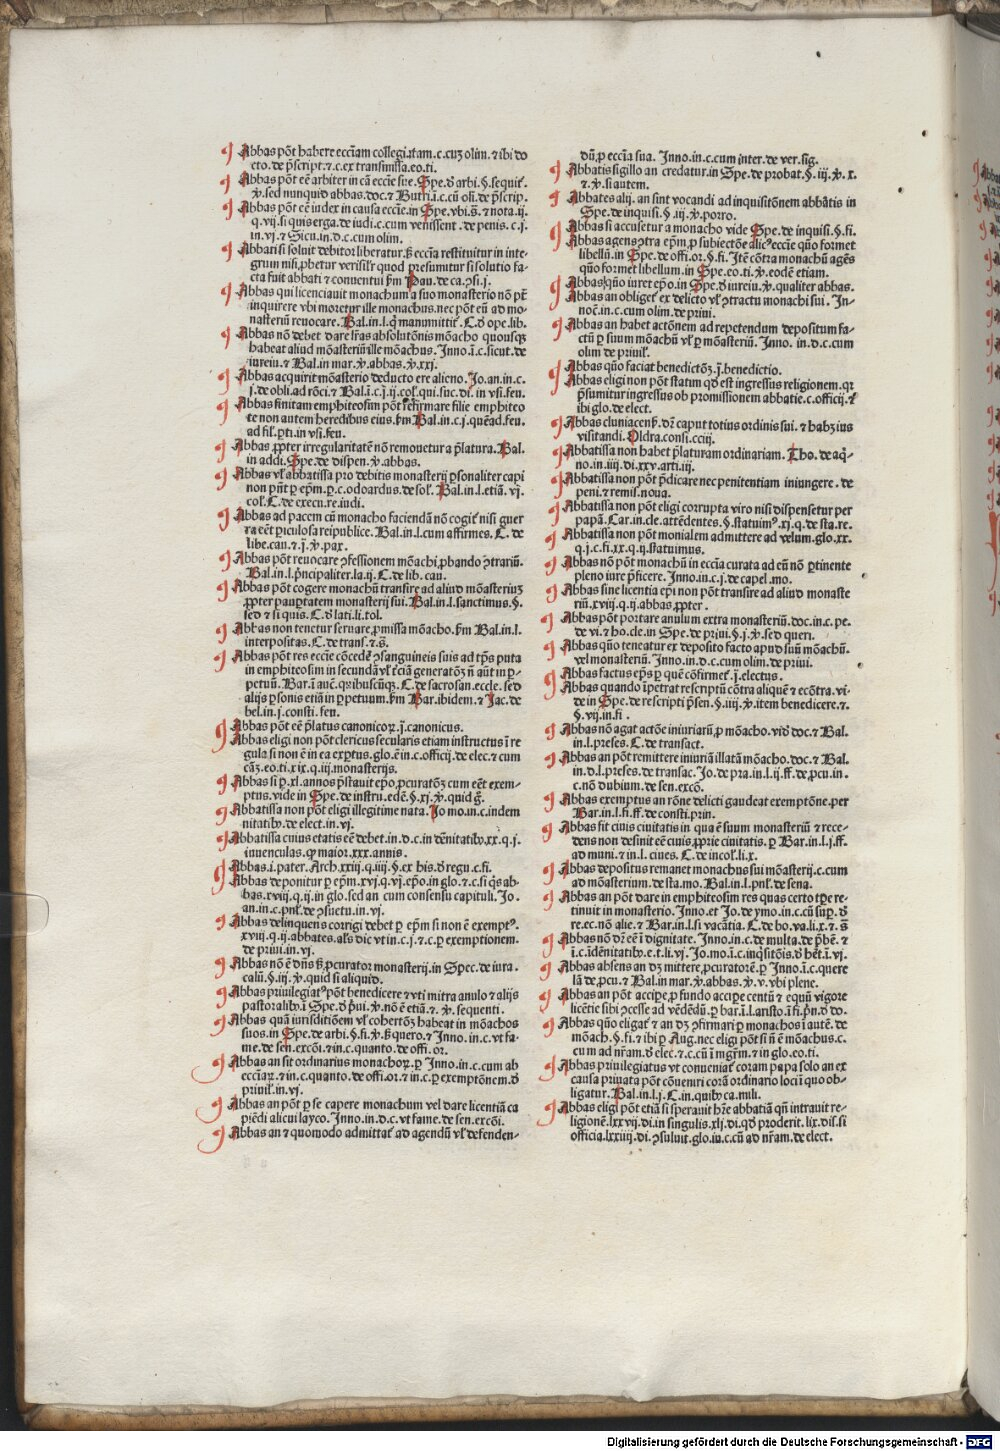 Abbas pōt habere eccīam collegiatam.c.cuz olim.⁊ ibi do
cto.de p̄script.⁊.c.ex transmissa.eo.ti.
Abbas pōt eē arbiter in cā eccīe sue. Spe.ꝺ arbi.§.sequit᷑.
ꝟ.sed nunquid abbas.doc.⁊ Butri.ī.c.cū oli.de p̄scrip.
Abbas pōt eē iudex in causa eccīe.in Spe.vbi.s̄.⁊ nota.ij.
q.vij.si quis erga.de iudi.c.cum venissent.de penis.c.j.
in.vj.⁊ Sicu.in.d.c.cum olim.
Abbati si soluit debitor liberatur.ꝫ eccīa restituitur in inte-
grum nisi ꝓbetur verisilr̄ quod presumitur si solutio fa-
cta fuit abbati ⁊ conuentui ẜm Pau.de ca.ꝯsi.j.
Abbas qui licenciauit monachum a suo monasterio nō pōt
inquirere vbi moretur ille monachus.nec pōt eū ad mo-
nasteriū reuocare. Bal.in.l.q̄ manumittit᷑. C.ꝺ ope.lib.
Abbas nō debet dare lr̄as absolutōnis mōacho quousqꝫ
habeat aliud mōasteriū ille mōachus. Inno.ī.c.sicut.de
iureiu.⁊ Bal.in mar.ꝟ.abbas.ꝟ.xxj.
Abbas acquirit mōasterio deducto ere alieno. Jo.an.in.c.
j.de obli.ad rōci.⁊ Bal.ī.c.j.ij.col.qui.suc.di.in vsi.feu.
Abbas finitam emphiteosim pōt ꝯfirmare filie emphiteo
te non autem heredibus eius.ẜm Bal.in.c.j.quēad.feu.
ad fil.ꝑti.in vsi.feu.
Abbas ꝓpter irregularitatē nō remouetur a p̄latura. Bal.
in addi. Spe.de dispen.ꝟ.abbas.
Abbas vl̄ abbatissa pro debitis monasterij ꝑsonaliter capi
non pn̄t ꝑ ep̄m.ꝑ.c.odoardus.de sol. Bal.in.l.etiā.vj
col. C.de execu.re.iudi.
Abbas ad pacem cū monacho faciendā nō cogit᷑ nisi guer
ra eēt ꝑiculosa reipublice. Bal.in.l.cum affirmes. C. de
libe.cau.⁊ j.ꝟ.pax.
Abbas pōt reuocare ꝯfessionem mōachi ꝓbando ꝯtrariū.
Bal.in.l.p̄ncipaliter.la.ij. C.de lib.cau.
Abbas pōt cogere monachū transire ad aliud mōasteriuꝫ
ꝓpter pauꝑtatem monasterij sui. Bal.in.l.sanctimus.§.
sed ⁊ si quis. C.ꝺ lati.li.tol.
Abbas non tenetur seruare ꝓmissa mōacho.ẜm Bal.in.l.
interpositas. C.de trans.⁊.s̄.
Abbas pōt res eccīe cōcedē ꝯsanguineis suis ad tp̄s puta
in emphiteosim in secundā vl̄ t᷑ciā generatōꝫ n̄ aūt in ꝑ-
petuū. Bar.ī auc̄.qꝛibuscūqꝫ. C.de sacrosan.eccle.sed
alijs ꝑsonis etiā in ꝑpetuum.ẜm Bar.ibidem.⁊ Jac.de
bel.in.j.consti.feu.
Abbas pōt eē p̄latus canonicoꝝ.j.canonicus.
Abbas eligi non pōt clericus secularis etiam instructus ī re
gula si non ē in ea exꝑtus.glo.ē in.c.officij.de elec.⁊ cum
cāꝫ.eo.ti.xix.q.iij.monasterijs.
Abbas si ꝑ.xl.annos p̄stauit ep̄o ꝓcuratōꝫ cum eēt exem-
ptus.vide in Spe.de instru.edē.§.xj.ꝟ.quid g̊.
Abbatissa non pōt eligi illegitime nata. Jo mo.in.c.indem
nitatib.de elect.in.vj.
Abbatissa cuius etatis eē debet.in.d.c.in dēnitatib.xx.q.j.
iuuenculas.qꝫ maior.xxx.annis.
Abbas.i.pater. Arch.xxiij.q.iiij.§.ex his.ꝺ regu.c.fi.
Abbas deponitur ꝑ ep̄m.xvj.q.vj.ep̄o.in glo.⁊.c.si q̄s ab-
bas.xviij.q.ij.in glo.sed an cum consensu capituli. Jo.
an.in.c.pnl.de ꝯsuetu.in.vj.
Abbas delinquens corrigi debet ꝑ ep̄m si non ē exempt᷒.
xviij.q.ij.abbates.als̄ dic vt in.c.j.⁊.c.ꝑ exemptionem.
de priui.in.vj.
Abbas nō ē dn̄s ꝫ ꝓcurator monasterij.in Spec.de iura.
calū.§.iij.ꝟ.quid si aliquid.
Abbas priuilegiat᷒ pōt benedicere ⁊ vti mitra anulo ⁊ alijs
pastoalib.ī Spe.ꝺ p̄ui.ꝟ.nō ē etiā.⁊.ꝟ.sequenti.
Abbas quā iurisditiōem vl̄ cohertōꝫ habeat in mōachos
suos.in Spe.de arbi.§.fi.ꝟ.ꝫ quero.⁊ Inno.in.c.vt fa-
me.de sen.excōi.⁊ in.c.quanto.de offi.or.
Abbas an sit ordinarius monachoꝝ.ꝑ Inno.in.c.cum ab
eccīaꝝ.⁊ in.c.quanto.de offi.or.⁊ in.c.ꝑ exemptōnem.ꝺ
priuil.in.vj.
Abbas an pōt ꝑ se capere monachum vel dare licentiā ca
piēdi alicui layco. Inno.in.d.c.vt fame.de sen.excōi.
Abbas an ⁊ quomodo admittat᷑ ad agendū vl̄ defenden-
dū ꝓ eccīa sua. Inno.in.c.cum inter.de ver.sig.
Abbatis sigillo an credatur.in Spe.de probat.§.iij.ꝟ.x.
⁊.ꝟ.si autem.
Abbates alij.an sint vocandi ad inquisitōnem abbātis in
Spe.de inquisi.§.iij.ꝟ.porro.
Abbas si accusetur a monacho vide Spe.de inquisi.§.fi.
Abbas agens ꝯtra ep̄m ꝓ subiectōe alic᷒ eccīe quo formet
libellū.in Spe.de offi.or.§.fi. Itē cōtra monachū agēs
quo formet libellum.in Spe.eo.ti.ꝟ.eodē etiam.
Abbas quo iuret ep̄o.in Spe.ꝺ iureiu.ꝟ.qualiter abbas.
Abbas an obliget᷑ ex delicto vl̄ ꝯtractu monachi sui. In-
noc̄.in.c.cum olim.de priui.
Abbas an habet actōnem ad repetendum depositum fa-
ctū ꝑ suum mōachū vl̄ ꝑ mōasteriū. Inno. in.d.c.cum
olim de priuil.
Abbas quo faciat benedictōꝫ.j.benedictio.
Abbas eligi non pōt statim qd̄ est ingressus religionem.qꝛ
p̄sumitur ingressus ob promissionem abbatie.c.officij.⁊
ibi glo.de elect.
Abbas cluniacens̄.dꝫ caput totius ordinis sui.⁊ habꝫ ius
visitandi. Oldra.consi.cciij.
Abbatissa non habet p̄laturam ordinariam. Tho.de aq̄-
no.in.iiij.di.xxv.arti.iij.
Abbatissa non pōt p̄dicare nec penitentiam iniungere.de
peni.⁊ remis.noua.
Abbatissa non pōt eligi corrupta viro nisi dispensetur per
papā. Car.in.cle.attēdentes.§.statuim᷒.xj.q.de sta.re.
Abbatissa non pōt monialem admittere ad velum.glo.xx.
q.j.c.fi.xx.q.ij.statuimus.
Abbas nō pōt monachū in eccīa curata ad eū nō ꝑtinente
pleno iure p̄ficere. Inno.in.c.j.de capel.mo.
Abbas sine licentia ep̄i non pōt transire ad aliud monaste
riū.xviij.q.ij.abbas ꝓpter.
Abbas pōt portare anulum extra monasteriū.doc.in.c.pe.
de vi.⁊ ho.cle.in Spe.de priui.§.j.ꝟ.sed queri.
Abbas quo teneatur ex deposito facto apud suū mōachū.
vel monasteriū. Inno.in.d.c.cum olim.de priui.
Abbas factus ep̄s ꝑ quē cōfirmet᷑.j.electus.
Abbas quando īpetrat rescriptū cōtra aliquē ⁊ ecōtra.vi-
de in Spe.de rescripti p̄sen.§.iiij.ꝟ.item benedicere.⁊.
§.vij.in.fi.
Abbas nō agat actōe iniuriarū ꝓ mōacho.vid̄ doc.⁊ Bal.
in.l.preses. C.de transact.
Abbas an pōt remittere iniuriā illatā mōacho.doc.⁊ Bal.
in.d.l.preses.de transac. Jo.de pra.in.l.ij.ff.de ꝓcu.in
c.nō dubium.de sen.excō.
Abbas exemptus an rōne delicti gaudeat exemptōne.per
Bar.in.l.fi.ff.de consti.prin.
Abbas fit ciuis ciuitatis in qua ē suum monasteriū ⁊ rece-
dens non desinit eē ciuis ꝓprie ciuitatis.ꝑ Bar.in.l.j.ff.
ad muni.⁊ in.l.ciues. C.de incol.li.x.
Abbas depositus remanet monachus sui mōasterij.c.cum
ad mōasterium.de sta.mo. Bal.in.l.pnl.de sena.
Abbas an pōt dare in emphiteosim res quas certo tꝑe re-
tinuit in monasterio. Inno.et Jo.de ymo.in.c.cū suꝑ.ꝺ
re.ec.nō alie.⁊ Bar.in.l.si vacātia. C.de bo.va.li.x.⁊.s̄
Abbas nō dꝛ eē ī dignitate. Inno.in.c.de multa.de p̄bē.⁊
ī.c.īdēnitatib.e.t.li.vj. Jo.mo.ī.c.inq̄sitōis.ꝺ het̄.ī.vj.
Abbas absens an dꝫ mittere ꝓcuratorē.ꝑ Inno.ī.c.quere
lā de ꝓcu.⁊ Bal.in mar.ꝟ.abbas.ꝟ.v.vbi plene.
Abbas an pōt accipe ꝓ fundo accipe centū ⁊ equū vigore
licētie sibi ꝯcesse ad vēdēdū.ꝑ bar.ī.l.aristo.ī fi.p̄n.ꝺ do.
Abbas quo eligat᷑ ⁊ an dꝫ ꝯfirmari ꝑ monachos ī autē.de
mōach.§.fi.⁊ ibi ꝑ Aug.nec eligi pōt si n̄ ē mōachus.c.
cum ad nr̄am.ꝺ elec.⁊.c.cū ī mgr̄m.⁊ in glo.eo.ti.
Abbas priuilegiatus vt conueniat᷑ coram papa solo an ex
causa priuata pōt cōueniri corā ordinario loci ī quo ob-
ligatur. Bal.in.l.j. C.in.quib ca.mili.
Abbas eligi pōt etiā si sperauit hr̄e abbatiā qn̄ intrauit re-
ligionē.lxxvij.di.in singulis.xlj.di.qd̄ proderit.lix.dis.si
officia.lxxiij.di.ꝯsuluit.glo.in.c.cū ad nr̄am.de elect.
Digitalisierung gefördert durch die Deutsche Forschungsgemeinschaft - DFG